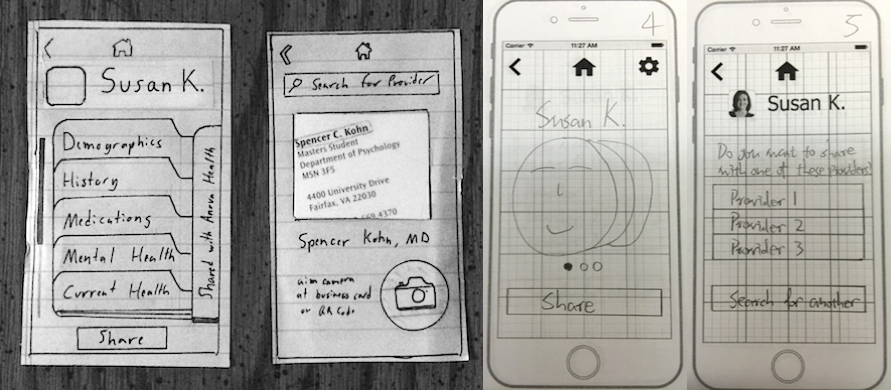 Susan K.
Demographics
History
Medications
Mental Health
Current Health
Shared with Anova Health
Share
Search for Provider
Spencer C. Kohn
Masters Student
Department of Psychology
MSN 3F5
4400 University Drive
Fairfax, VA 22030
669.4370
Spencer Kohn, MD
aim camera
at business card
or QR Code
4
Carrier 11:27 AM
Susan K.
Share
5
Carrier 11:27 AM
Susan K.
Do you want to share
with one of these Providers?
Provider 1
Provider 2
Provider 3
Search for another